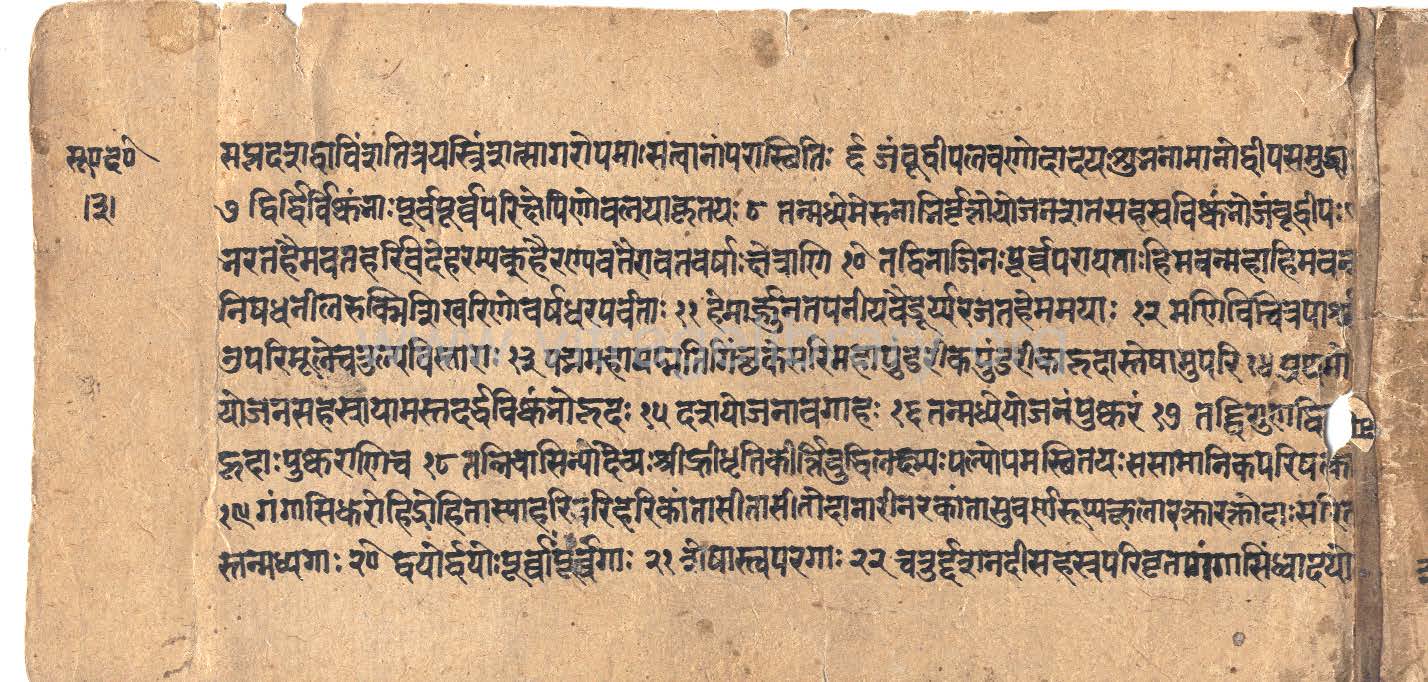 सूत्रद॰
।३।
सप्तदशद्वाविंशतित्रयस्त्रिंशत्सागरोपमासत्वानांपरास्थितिः ६ जंबूद्वीपलवणोदादयःशुभनामानोद्वीपसमुद्रा
७ द्विर्द्विर्विष्कंभाःपूर्वपूर्व्वपरिक्षेपिणोवलयाकृतयः ८ तन्मध्येमेरुनाभिर्वृत्तोयोजनशतसहस्रविष्कंभोजंबूद्वीपः
भरतहैमवतहरिविदेहरम्यकहैरण्यवतैरावतवर्षाःक्षेत्राणि १० तद्विभाजिनःपूर्व्वपरायताःहिमवन्महाहिमवन
निषधनीलरुक्मिशिखरिणोवर्षधरपर्वताः ११ हेमार्ज्जुनतपनीयवैडूर्य्यरजतहेममयाः १२ मणिविचित्रपार्श्वा
उपरिमूलेचतुल्यविस्ताराः १३ पद्ममहापद्मतिगिंछकेसरिमहापुंडरीकपुंडरीकाह्रदास्तेषामुपरि १४ प्रथमो
योजनसहस्रायामस्तदर्द्धविष्कंभोह्रदः १५ दशयोजनावगाहः १६ तन्मध्येयोजनंपुष्करं १७ तद्द्विगुणाद्वि
ह्रदाःपुष्कराणिच १८ तन्निवासिन्योदेव्यःश्रीह्रीधृतिकीर्त्तिबुद्धिलक्ष्म्यःपल्योपमस्थितयःससामानिकपरिषत्का
१९ गंगासिंधुरोहिद्रोहितास्याहरिद्धरिकांतासीतासीतोदानारीनरकांतासुवर्णरूप्यकूलारक्तारक्तोदाःसरित
स्तन्मध्यगाः २० द्वयोर्द्वयोःपूर्व्वाःपूर्व्वगाः २१ शेषास्त्वपरगाः २२ चतुर्द्दशनदीसहस्रपरिवृतागंगासिंध्वादयो